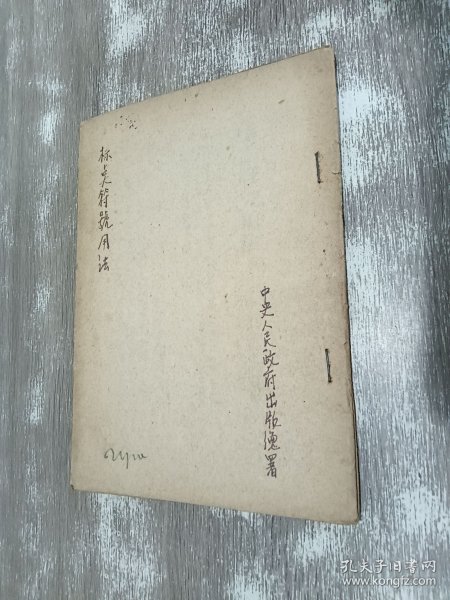 标点符號用法
中央人民政府出版總署
孔夫子旧书网
www.kongfz.com